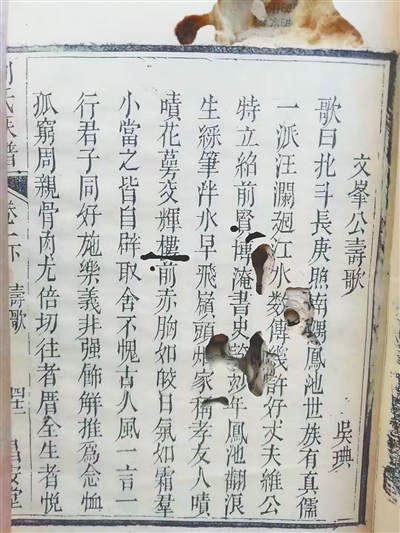 文峯公壽歌
吳琠
歌曰北斗長庚照南 鳳池世族有真儒
一派汪瀾廻江水數傳幾許好丈夫維公
特立紹前賢博淹書史 妙年鳳池翻浪
生綵筆泮水早飛嶺頭 家稱孝友人嘖
嘖花萼交輝樓前亦胸如皎日氣如霜羣
小當之皆自辟取舍不愧古人風一言一
行君子同好施樂義非强飾解推爲念恤
孤窮周親骨肉尤倍切往者厝全生者悅
劉氏族譜 卷一下 壽歌 堂